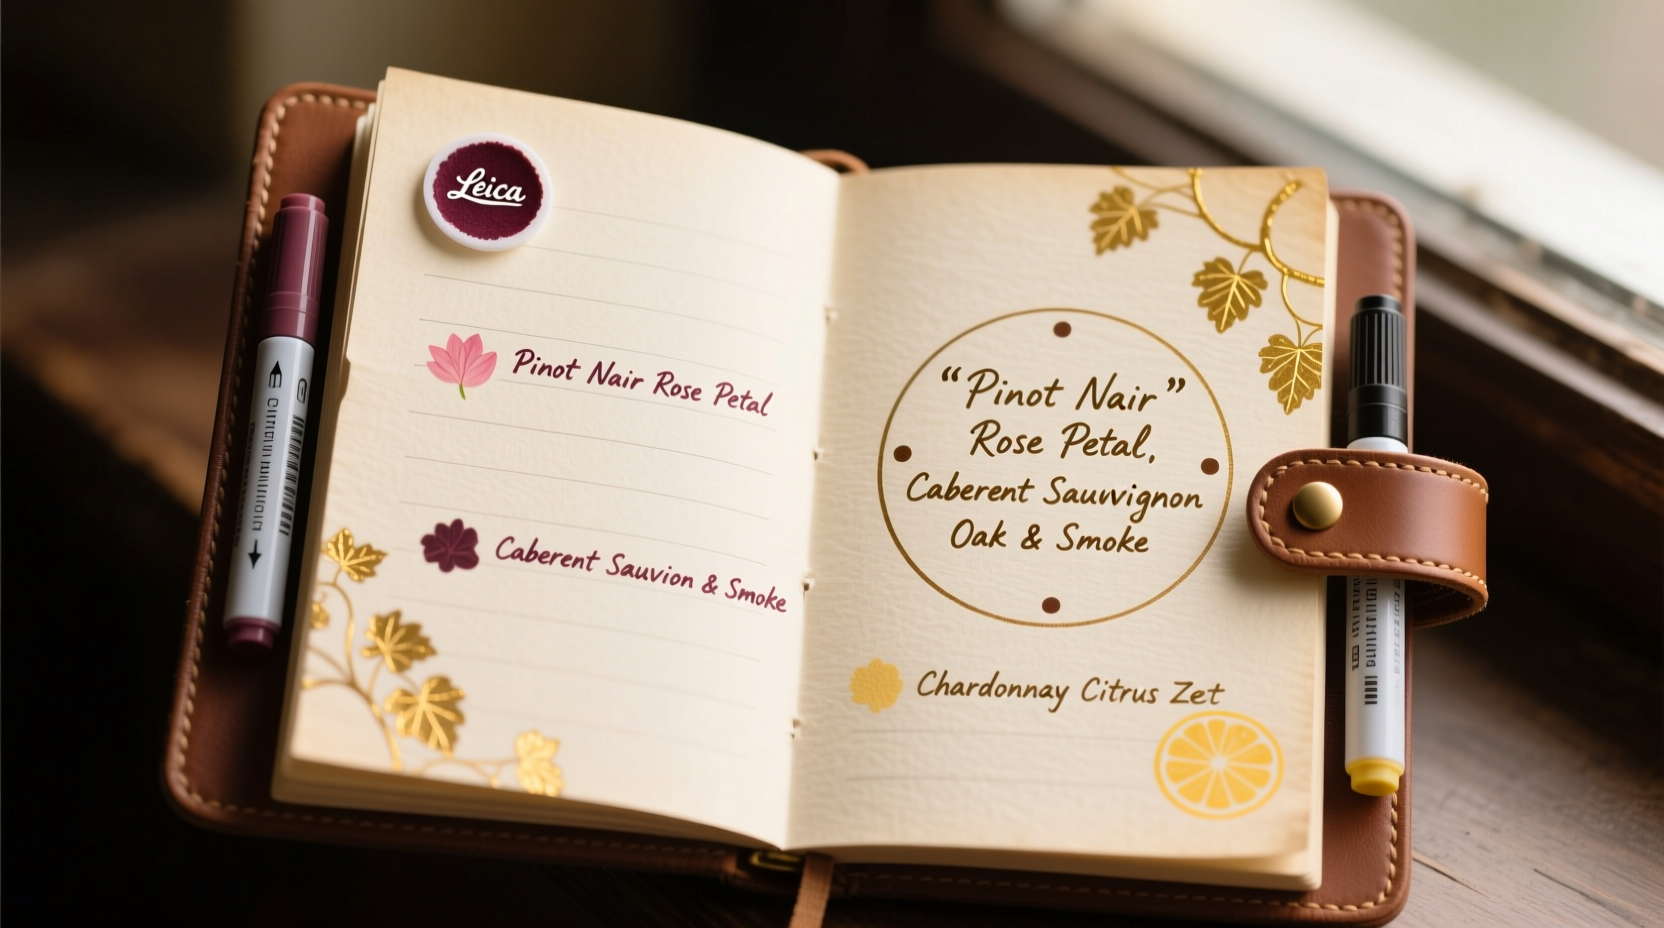 Leica
Pinot Nair Rose Petal
Caberent Sauvion & Smoke
“Pinot Nair”
Rose Petal,
Caberent Sauvvignon
Oak & Smoke
Chardonnay Citrus Zet